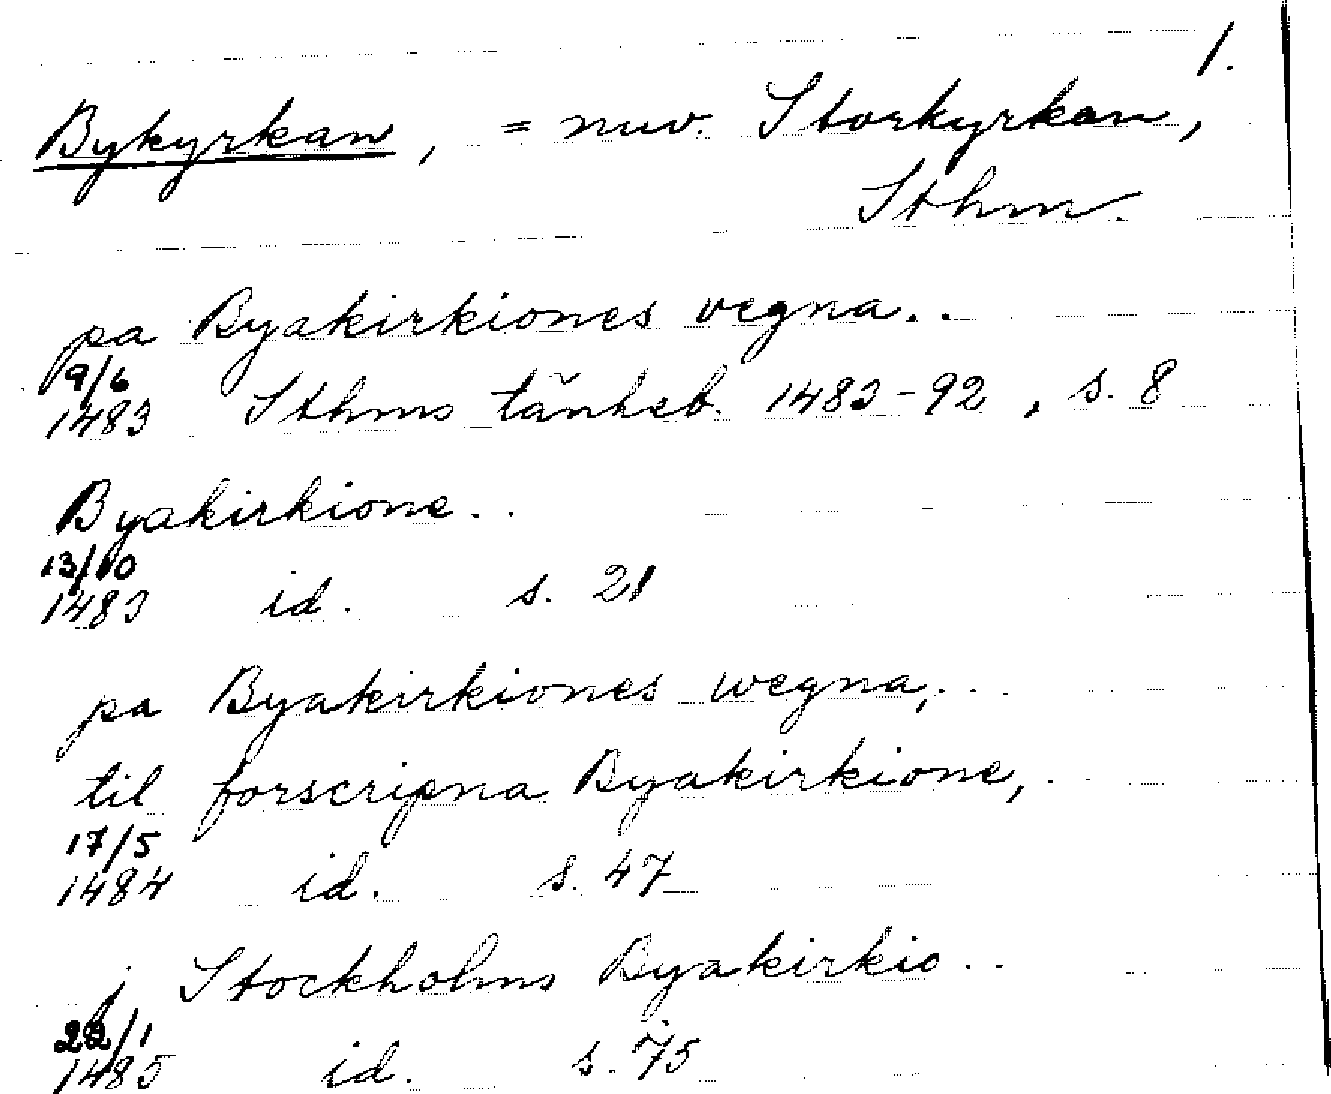 1.
Bykyrkan, = nuv. Storkyrkan,
Sthm.
pa Byakirkiones vegna..
9/6
1483 Sthms tänkeb. 1483-92, s. 8
Byakirkione..
13/10
1483 id. s. 21
pa Byakirkiones wegna,...
til forscripna Byakirkione,.
17/5
1484 id. s. 47
j Stockholms Byakirkio..
22/1
1485 id. s. 75